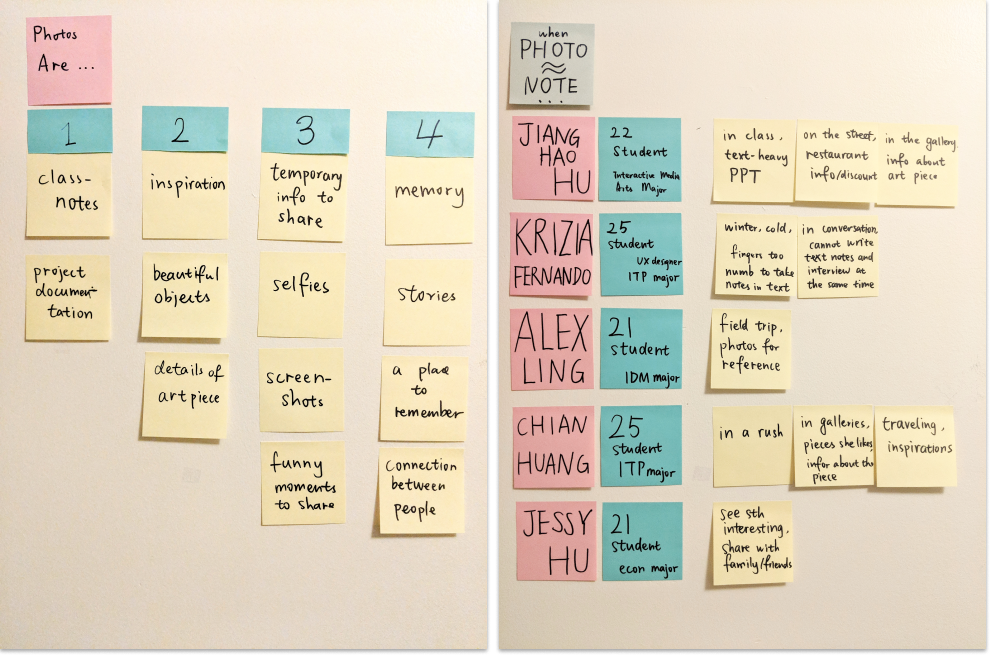 Photos
Are ...
1
class-
notes
project
documen-
tation
2
inspiration
beautiful
objects
details of
art piece
3
temporary
info to
share
selfies
screen-
shots
funny
moments
to share
4
memory
stories
a place
to
remember
connection
between
people
when
PHOTO
≈
NOTE
...
JIANG
HAO
HU
22
Student
Interactive Media
Arts Major
in class,
text-heavy
PPT
on the street,
restaurant
info/discount
in the gallery
info about
art piece
KRIZIA
FERNANDO
25
student
UX designer
ITP major
winter, cold,
fingers too
numb to take
notes in text
in conversation
cannot write
text notes and
interview at
the same time
ALEX
LING
21
student
IDM major
field trip,
photos for
reference
CHIAN
HUANG
25
student
ITP major
in a rush
in galleries,
pieces she likes,
infor about the
piece
traveling,
inspirations
JESSY
HU
21
student
econ major
see sth
interesting,
share with
family/friends